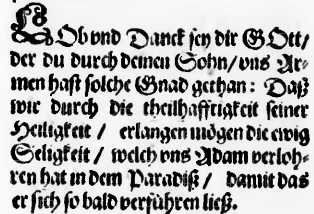 LOb vnd Danck sey dir GOtt/
der du durch deinen Sohn/vns Ar-
men hast solche Gnad gethan: Daß
wir durch die theilhafftigkeit seiner
Heiligkeit / erlangen mögen die ewig
Seligkeit / welch vns Adam verloh-
ren hat in dem Paradiß / damit das
er sich so bald verführen ließ.